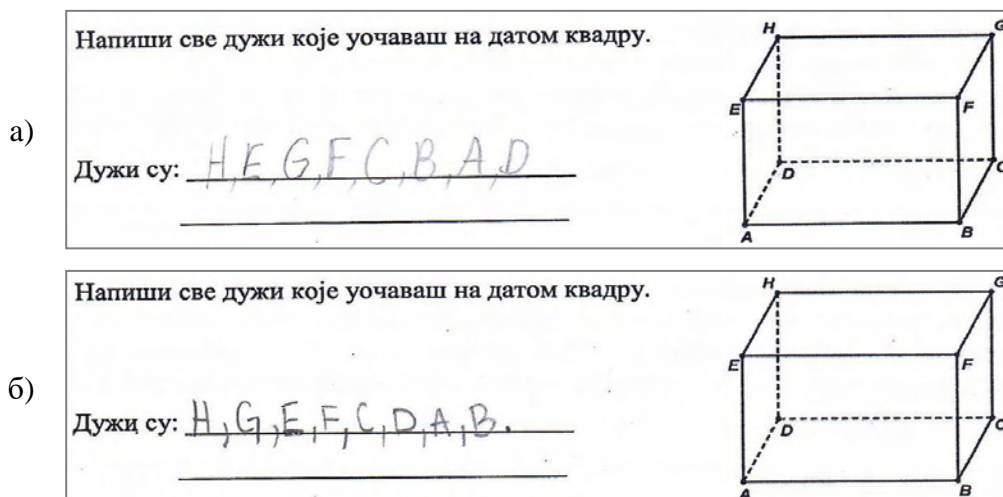 а)
Напиши све дужи које уочаваш на датом квадру.
Дужи су: H, E, G, F, C, B, A, D
H
G
E
F
D
C
A
B
б)
Напиши све дужи које уочаваш на датом квадру.
Дужи су: H, G, E, F, C, D, A, B.
H
G
E
F
D
C
A
B